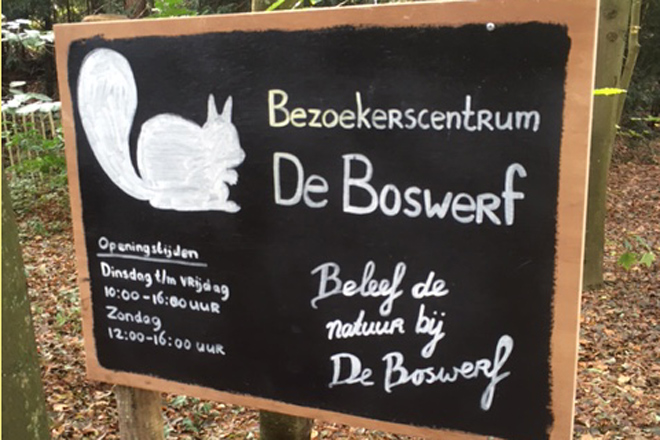 Bezoekerscentrum
De Boswerf
Openingstijden
Dinsdag t/m vrijdag
10:00-16:00 uur
Zondag
12:00-16:00 uur
Beleef de
natuur bij
De Boswerf